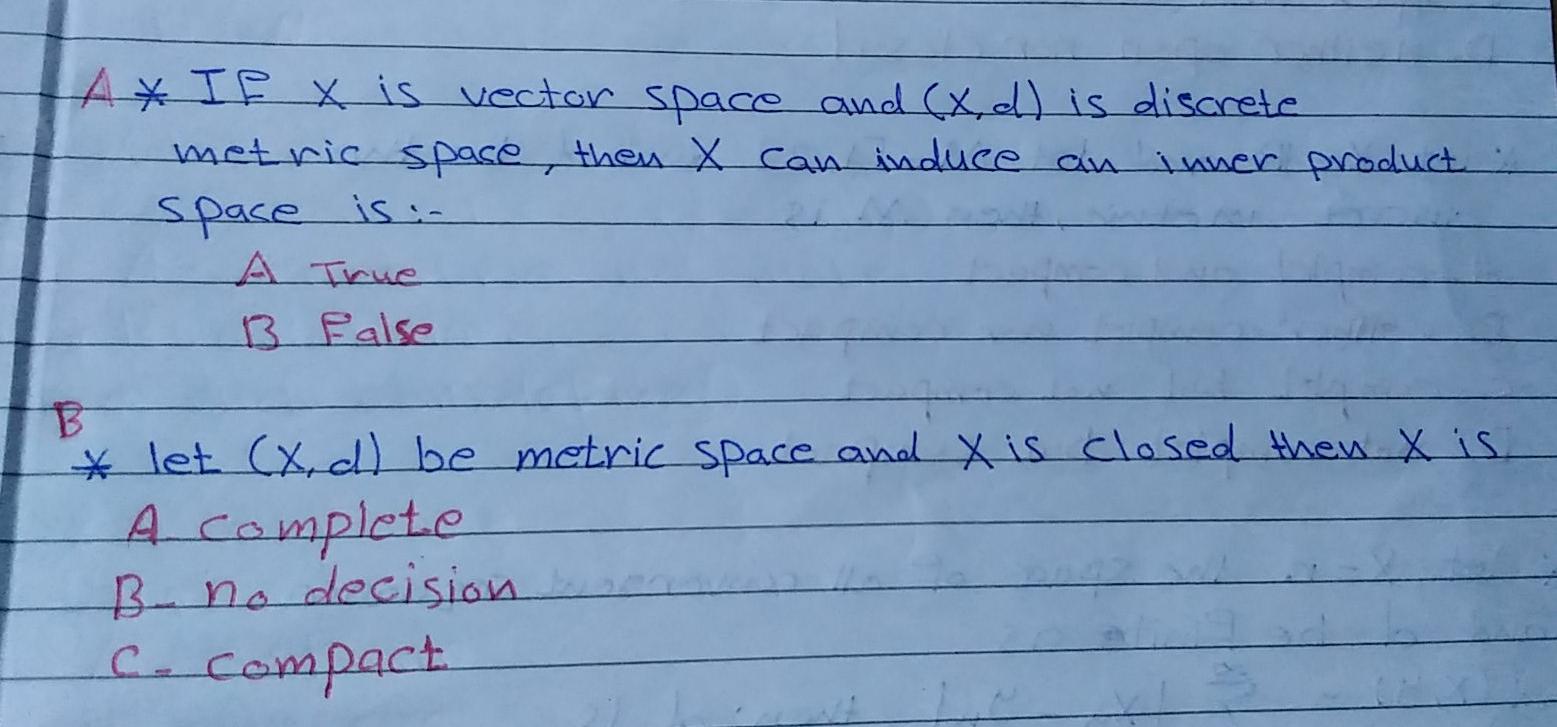 A * IF X is vector space and (X,d) is discrete
metric space, then X can induce an inner product
space is :-
A True
B False
B
* let (X,d) be metric space and X is closed then X is
A complete
B- no decision
C- compact